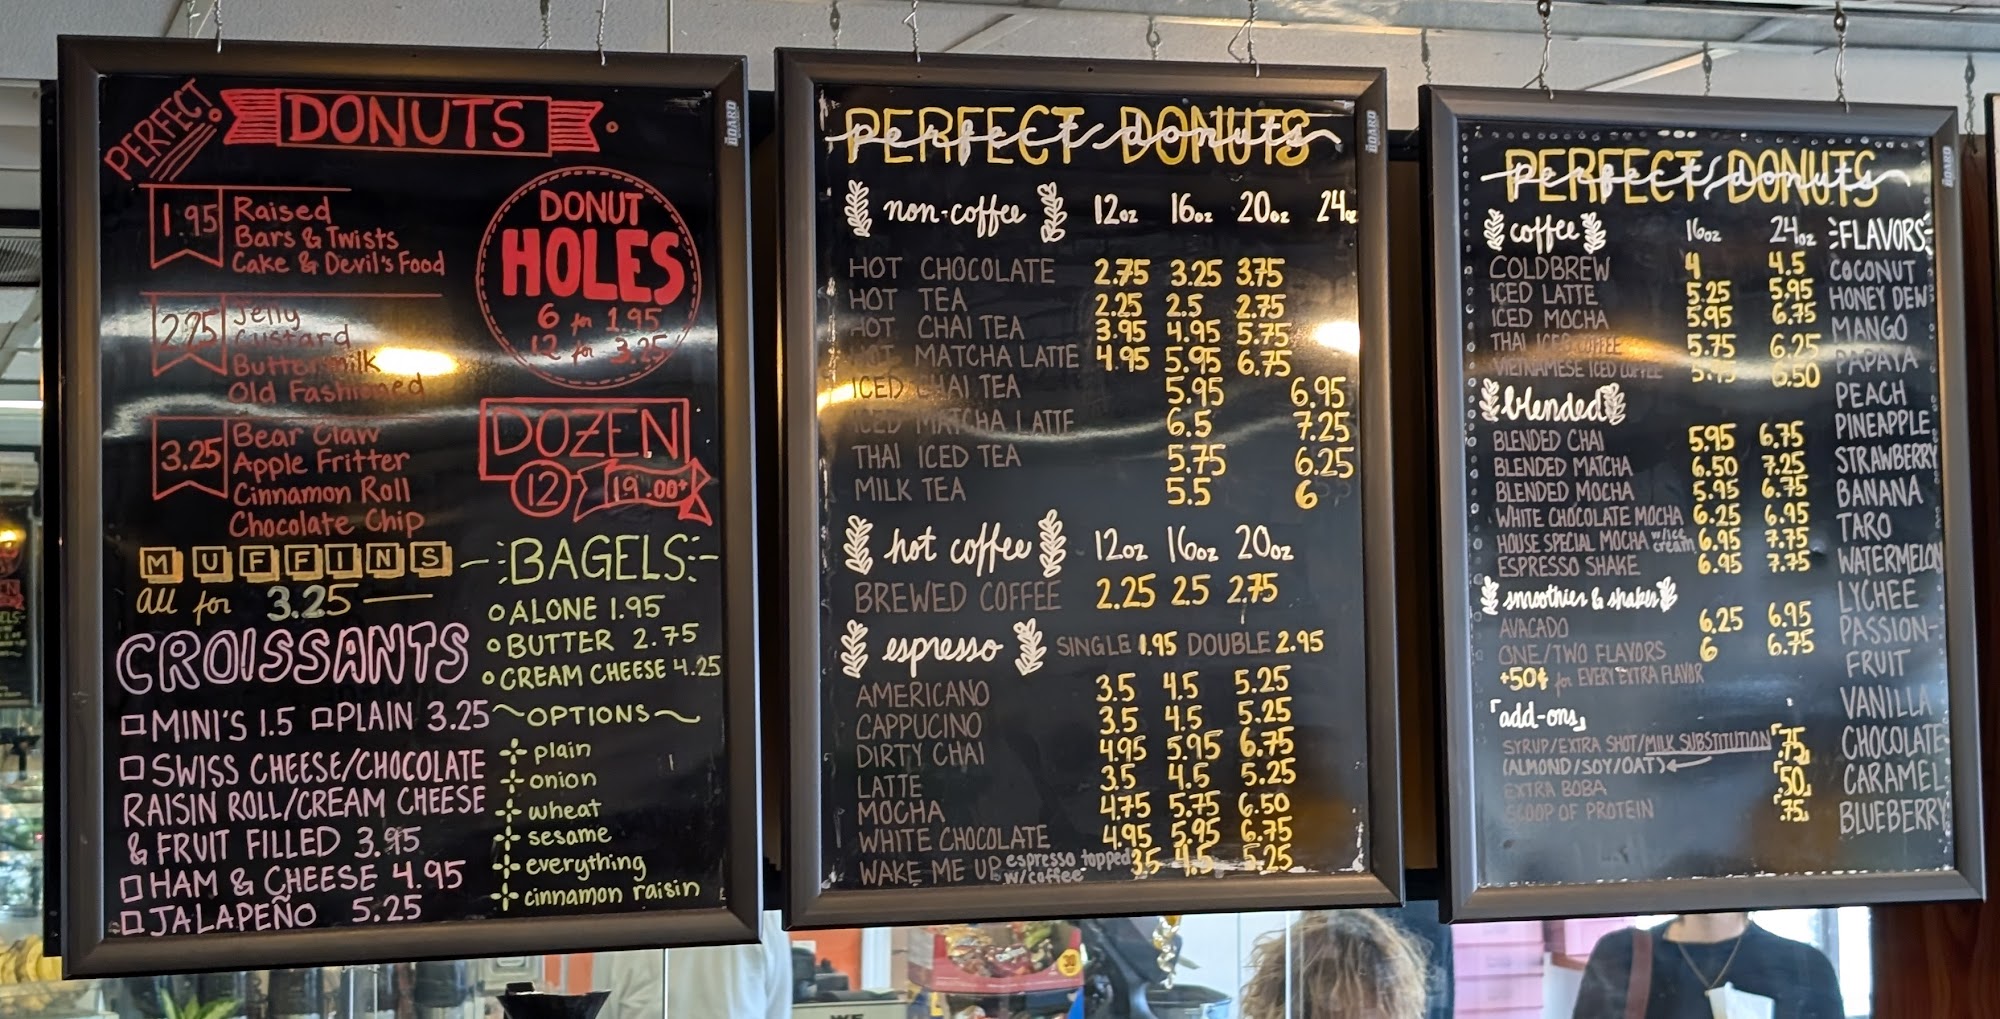 PERFECT DONUTS
1.95 Raised
Bars & Twists
Cake & Devil's Food
Jelly
Custard
Buttermilk
Old Fashioned
3.25 Bear Claw
Apple Fritter
Cinnamon Roll
Chocolate Chip
DONUT
HOLES
6 for 1.95
12 for 3.25
DOZEN
12 19.00+
MUFFINS
all for 3.25
CROISSANTS
MINI'S 1.5 PLAIN 3.25
SWISS CHEESE/CHOCOLATE
RAISIN ROLL/CREAM CHEESE
& FRUIT FILLED 3.95
HAM & CHEESE 4.95
JALAPEÑO 5.25
BAGELS
ALONE 1.95
BUTTER 2.75
CREAM CHEESE 4.25
OPTIONS
plain
onion
wheat
sesame
everything
cinnamon raisin
PERFECT DONUTS
perfect donuts
non-coffee 12oz 16oz 20oz 24oz
HOT CHOCOLATE 2.75 3.25 3.75
HOT TEA 2.25 2.5 2.75
HOT CHAI TEA 3.95 4.95 5.75
HOT MATCHA LATTE 4.95 5.95 6.75
ICED CHAI TEA 5.95 6.95
ICED MATCHA LATTE 6.5 7.25
THAI ICED TEA 5.75 6.25
MILK TEA 5.5 6
hot coffee 12oz 16oz 20oz
BREWED COFFEE 2.25 2.5 2.75
espresso SINGLE 1.95 DOUBLE 2.95
AMERICANO 3.5 4.5 5.25
CAPPUCINO 3.5 4.5 5.25
DIRTY CHAI 4.95 5.95 6.75
LATTE 3.5 4.5 5.25
MOCHA 4.75 5.75 6.50
WHITE CHOCOLATE 4.95 5.95 6.75
WAKE ME UP espresso topped w/coffee 3.5 4.5 5.25
PERFECT DONUTS
perfect donuts
coffee 16oz 24oz
COLDBREW 4 4.5
ICED LATTE 5.25 5.95
ICED MOCHA 5.95 6.75
THAI ICED COFFEE 5.75 6.25
VIETNAMESE ICED COFFEE 6.50
blended
BLENDED CHAI 5.95 6.75
BLENDED MATCHA 6.50 7.25
BLENDED MOCHA 5.95 6.75
WHITE CHOCOLATE MOCHA 6.25 6.95
HOUSE SPECIAL MOCHA w/ice cream 6.95 7.75
ESPRESSO SHAKE 6.95 7.75
smoothies & shakes
AVACADO 6.25 6.95
ONE/TWO FLAVORS 6 6.75
+50¢ for EVERY EXTRA FLAVOR
add-ons
SYRUP/EXTRA SHOT/MILK SUBSTITUTION .75
(ALMOND/SOY/OAT)
EXTRA BOBA .50
SCOOP OF PROTEIN .75
FLAVORS
COCONUT
HONEY DEW
MANGO
PAPAYA
PEACH
PINEAPPLE
STRAWBERRY
BANANA
TARO
WATERMELON
LYCHEE
PASSION-
FRUIT
VANILLA
CHOCOLATE
CARAMEL
BLUEBERRY